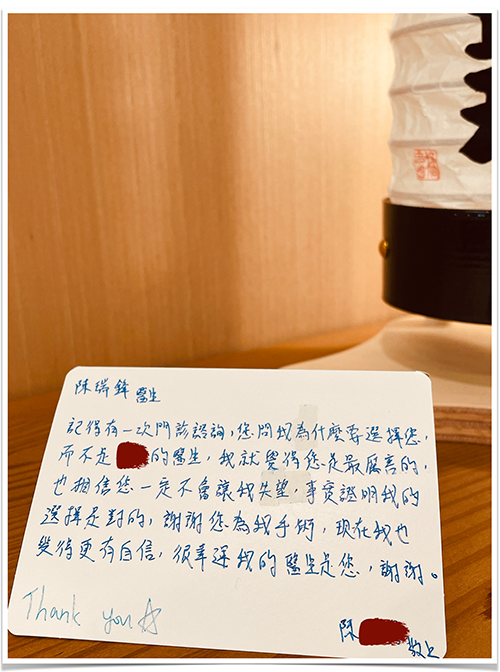 陳瑞鋒 醫生
記得有一次門診諮詢,您問我為什麼要選擇您,
而不是 的醫生,我就覺得您是最厲害的,
也相信您一定不會讓我失望,事實證明我的
選擇是對的,謝謝您為我手術,現在我也
變得更有自信,很幸運我的醫生是您,謝謝。
Thank you
陳 敬上